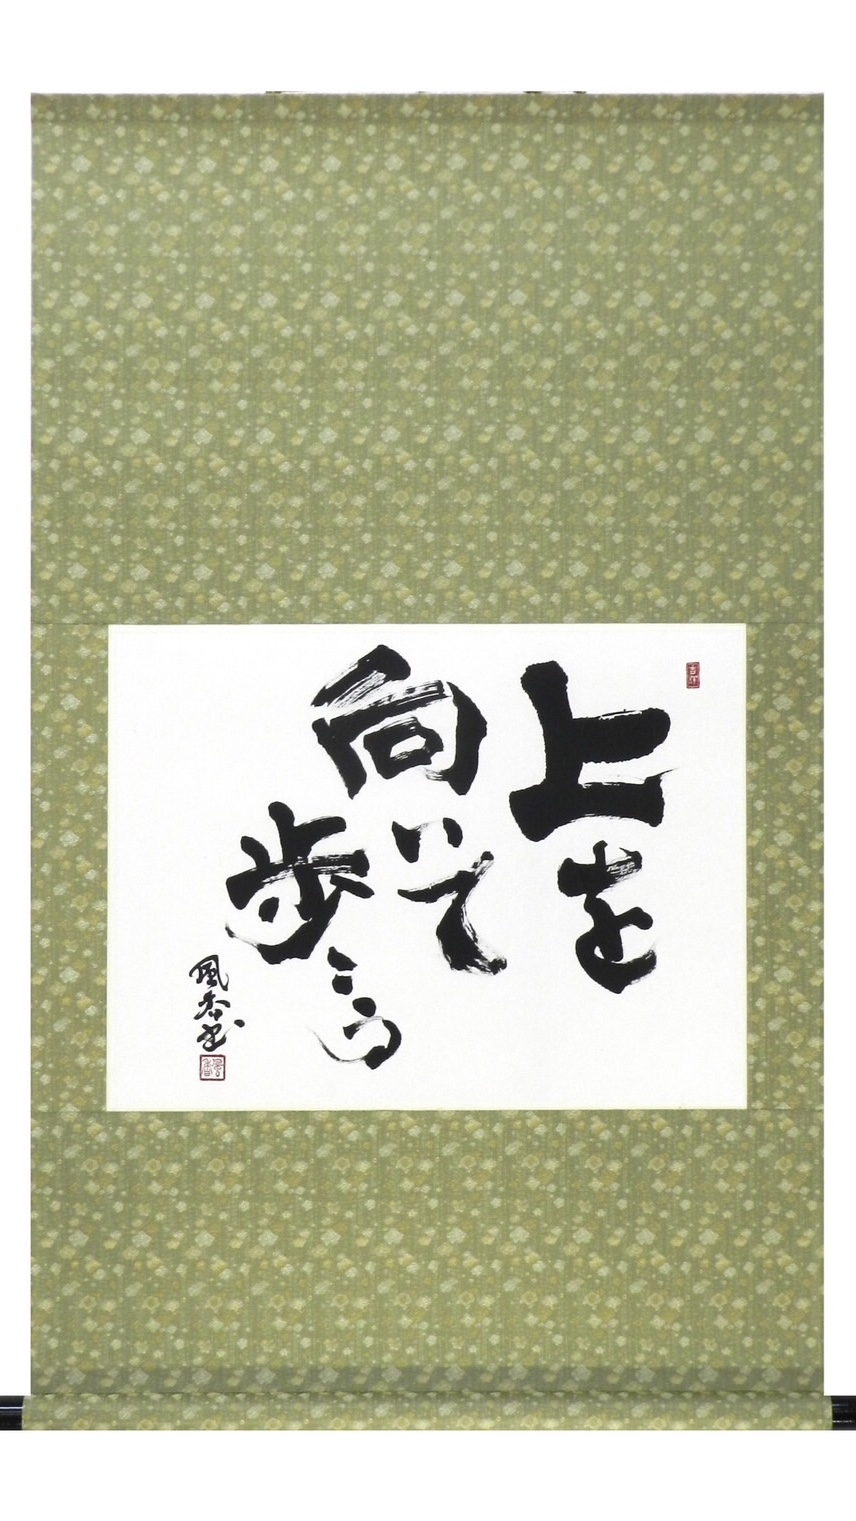 上を
向いて
歩こう
風香書